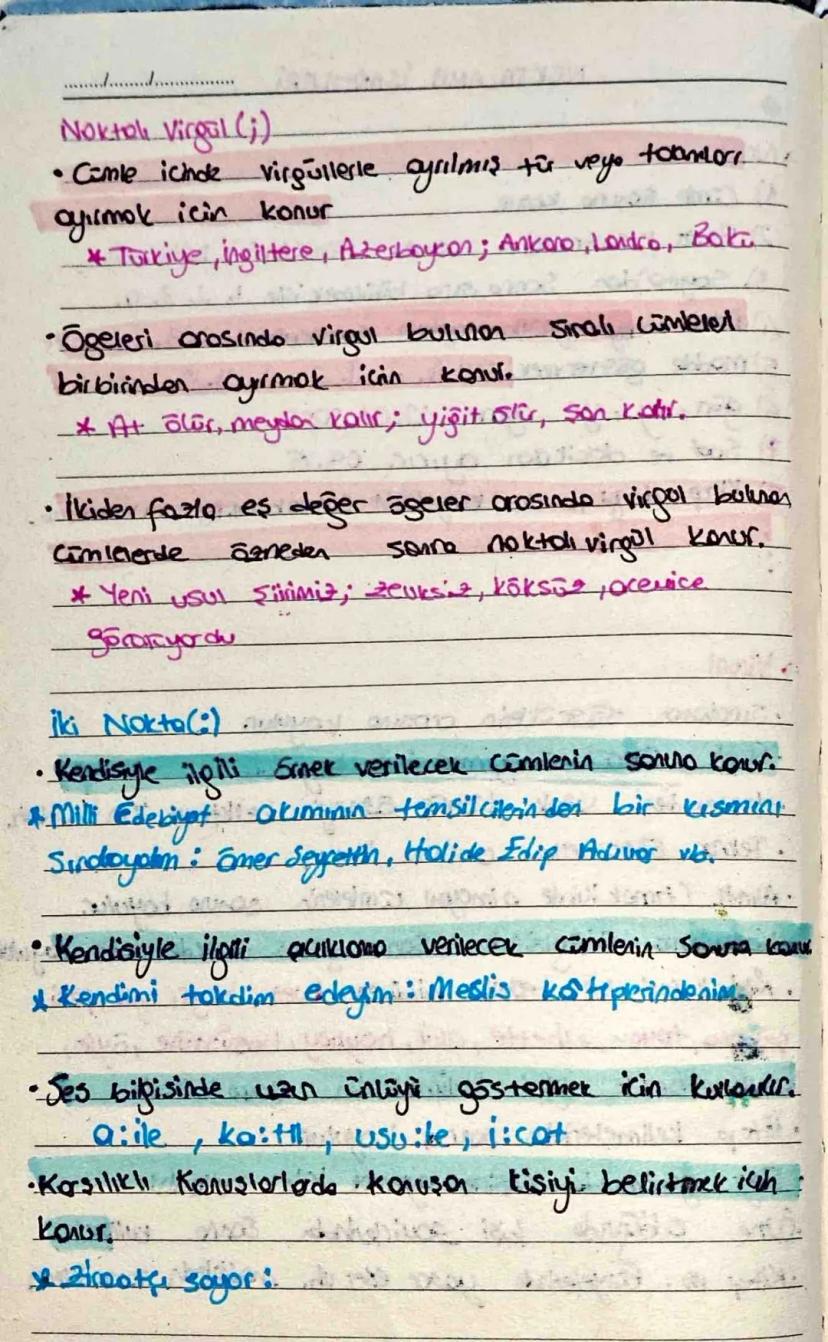 ......../......../...............
Noktalı Virgül (;)
• Cümle içinde virgüllerle ayrılmış tür veya takımları
ayırmak için konur
* Türkiye, İngiltere, Azerbaycan; Ankara, Londra, Bakü
• Ögeleri arasında virgül bulunan sıralı cümleleri
birbirinden ayırmak için konur.
* At ölür, meydan kalır; yiğit ölür, şan kalır.
• İkiden fazla eş değer ögeler arasında virgül bulunan
cümlelerde özneden sonra noktalı virgül konur.
* Yeni usul şiirimiz; zevksiz, köksüz, acemice
görünüyordu
İki Nokta (:)
• Kendisiyle ilgili örnek verilecek cümlenin sonuna konur.
* Milli Edebiyat akımının temsilcilerinden bir kısmını
Sıralayalım : Ömer Seyfettin, Halide Edip Adıvar vb.
• Kendisiyle ilgili açıklama verilecek cümlenin sonuna konur
* Kendimi takdim edeyim : Meclis kâtiplerindenim.
• Ses bilgisinde uzun ünlüyü göstermek için kullanılır.
a:ile, ka:til, usu:le, i:cat
• Karşılıklı Konuşmalarda konuşan kişiyi belirtmek için
konur.
* Ziraatçı sayar :